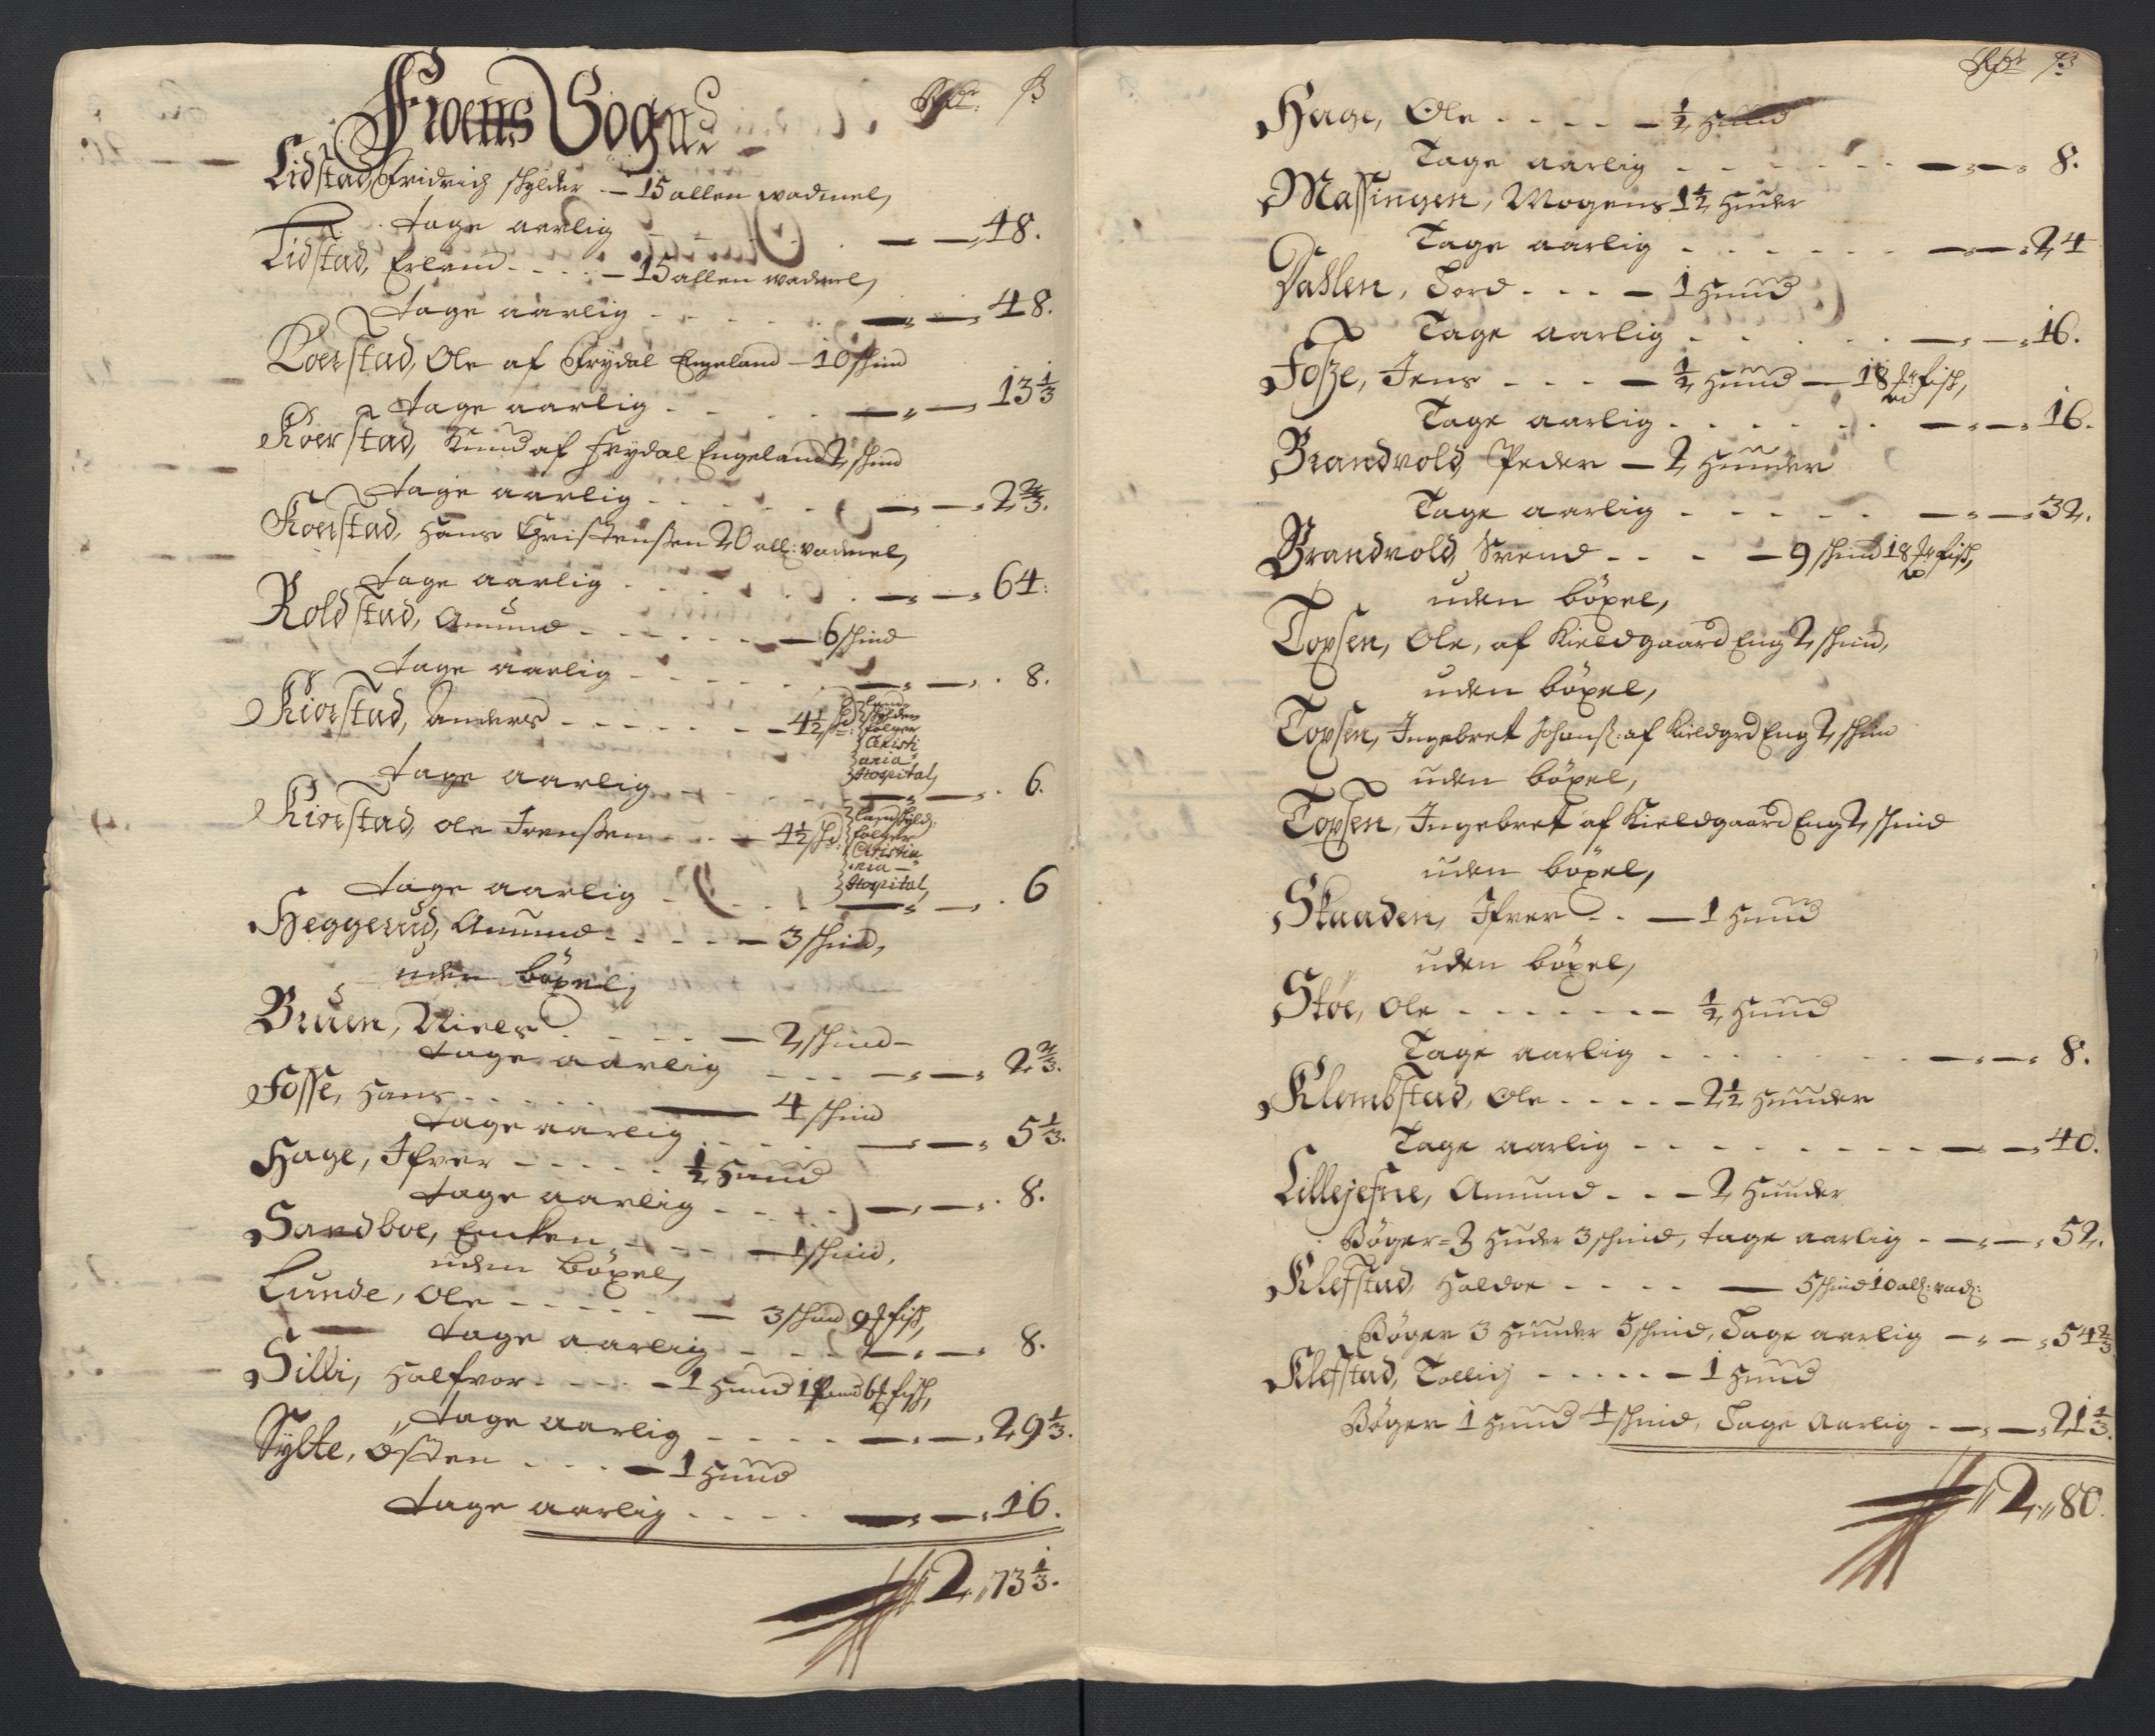 Froens Sogn
Rdr: ß
Lidstad, Fridrich skylder - 15 allen wadmel,
tage aarlig - 48.
Lidstad, Erland - 15 allen wadmel,
tage aarlig - 48.
Koerstad, Ole af Frydal Engeland - 10 skind
tage aarlig - 13 1/3
Koerstad, Knud af Frydal Engeland 2 skind
tage aarlig - 2 2/3.
Koerstad, Hans Christensen 20 all: vadmel,
tage aarlig - 64:
Roldstad, Amund - 6 skind
tage aarlig - 8.
Kiorstad, Anders - 4 1/2 skd: Land
skylden
følger
Christi
ania
Hospital,
tage aarlig - 6.
Kiorstad, Ole Irenssen - 4 1/2 skd: Landskyld:
følger
Christia
nia
Hospital,
tage aarlig - 6
Heggerud, Amund - 3 skind,
uden böxel,
Bruen, Niels - 2 skind
tage aarlig - 2 2/3.
Fosse, Hans - 4 skind
tage aarlig - 5 1/3.
Hage, Ifver - 1/2 Huud
tage aarlig - 8.
Sandboe, Encken - 1 skind,
uden böxel,
Lunde, Ole - 3 skind 9 fisk,
tage aarlig - 8.
Silli, Halfvor - 1 Huud 1 Pund 6 fisk,
tage aarlig - 29 1/3.
Sylte, Östen - 1 Huud
tage aarlig - 16.
2 „ 73 1/3.
Rdr ß
Hage, Ole - 1/2 Huud
Tage aarlig - 8.
Massingen, Mogens 1 1/2 Huder
Tage aarlig - 24
Dahlen, Tord - 1 Huud
Tage aarlig - 16.
Fosze, Jens - 1/2 Huud - 18 fisk,
Tage aarlig - 16.
Brandvold, Peder - 2 Huuder
Tage aarlig - 32.
Brandvold, Svend - 9 skind 18 fisk,
uden böxel,
Topsen, Ole, af Kieldgaard Eng 2 skind,
uden böxel,
Topsen, Ingebret Johanß: af Kieldgrd Eng 2 skin
uden böxel,
Topsen, Ingebret af Kieldgaard Eng 2 skind
uden böxel,
Skaaden, Ifver - 1 Huud
uden böxel,
Stöe, Ole - 1/2 Huud
Tage aarlig - 8.
Klombstad, Ole - 2 1/2 Huuder
Tage aarlig - 40.
Lillejefne, Amund - 2 Huuder
Böger = 3 Huder 3 skind, tage aarlig - 52.
Klefstad, Haldor - 5 skind 10 all: vad:
Böger 3 Huuder 5 skind, Tage aarlig - 54 2/3
Klefstad, Tollich - 1 Huud
Böger 1 Huud 4 skind, Tage aarlig - 21 1/3.
2 „ 80.